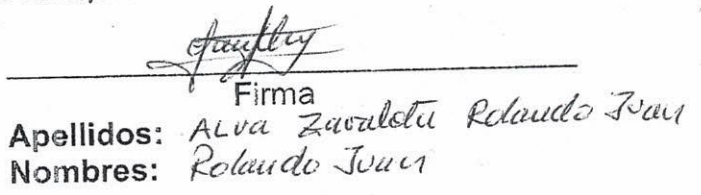 Firma
Apellidos: ALva Zavaleta Rolando Ivan
Nombres: Rolando Ivan